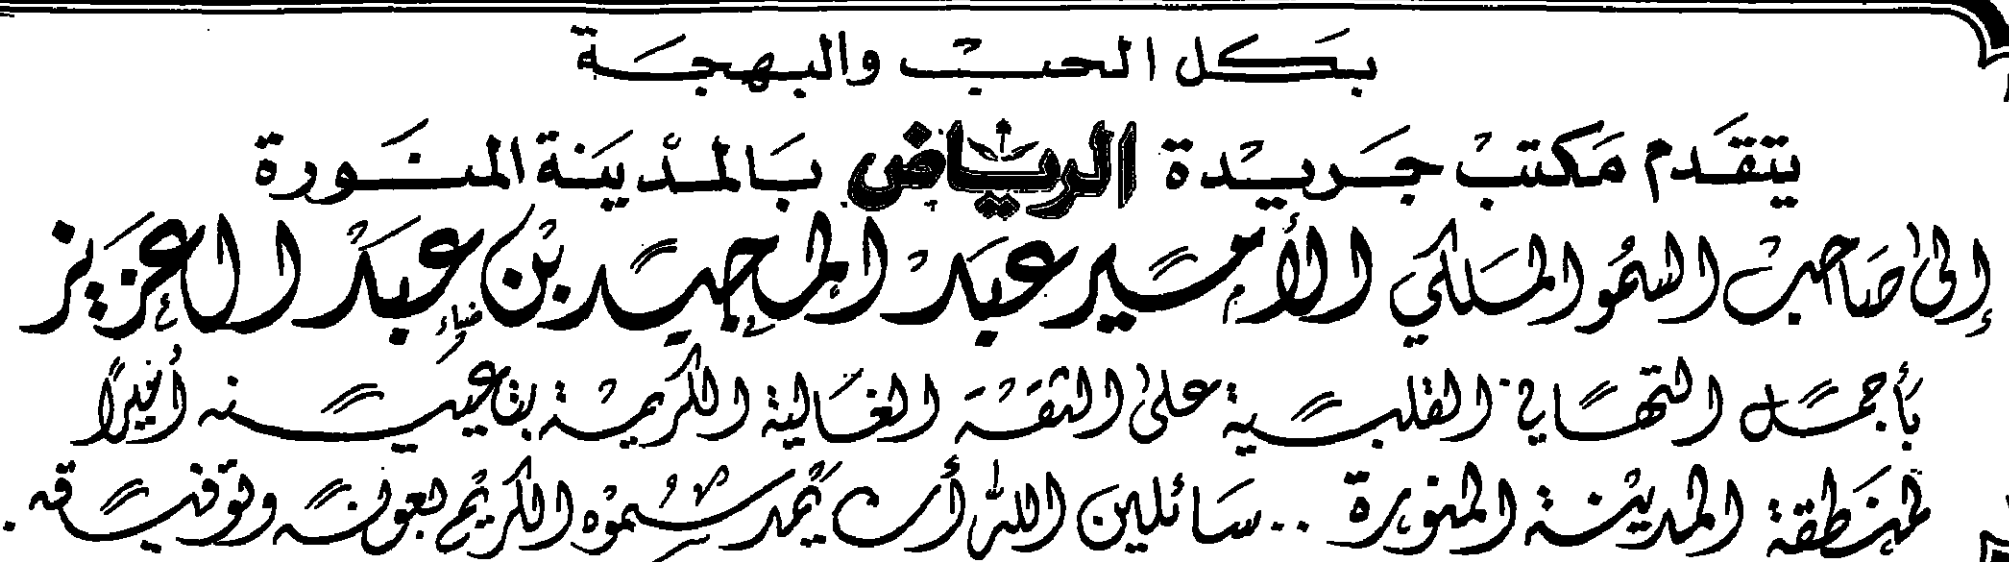 بكل الحب والبهجة
يتقدم مكتب جريدة الرياض بالمدينة المنورة
إلى صاحب السمو الملكي الأمير عبد المجيد بن عبد العزيز
بأجمل التهاني القلبية على الثقة الغالية الكريمة بتعيينه أميراً
لمنطقة المدينة المنورة .. سائلين الله أن يمد سموه الكريم بعونه وتوفيقه .